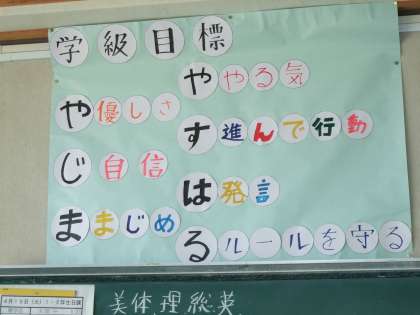 学級目標
や優しさ
じ自信
ままじめ
ややる気
す進んで行動
は発言
るルールを守る
美体理総英